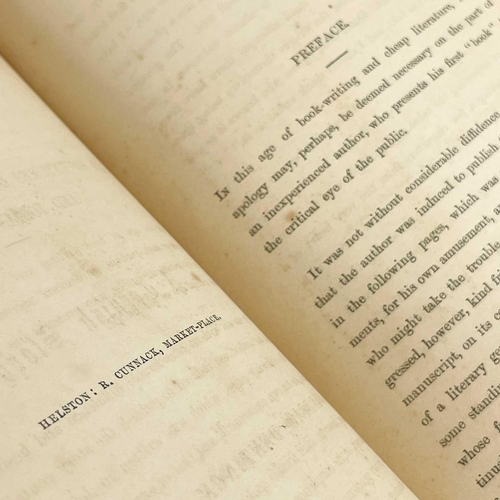 HELSTON: R. CUNNACK, MARKET-PLACE.
PREFACE.
In this age of book-writing and cheap literature,
apology may, perhaps, be deemed necessary on the part of
an inexperienced author, who presents his first "book"
the critical eye of the public.
It was not without considerable diffidence
that the author was induced to publish
in the following pages, which was
ments, for his own amusement,
who might take the trouble
gressed, however, kind
manuscript, on its
of a literary
some
whose